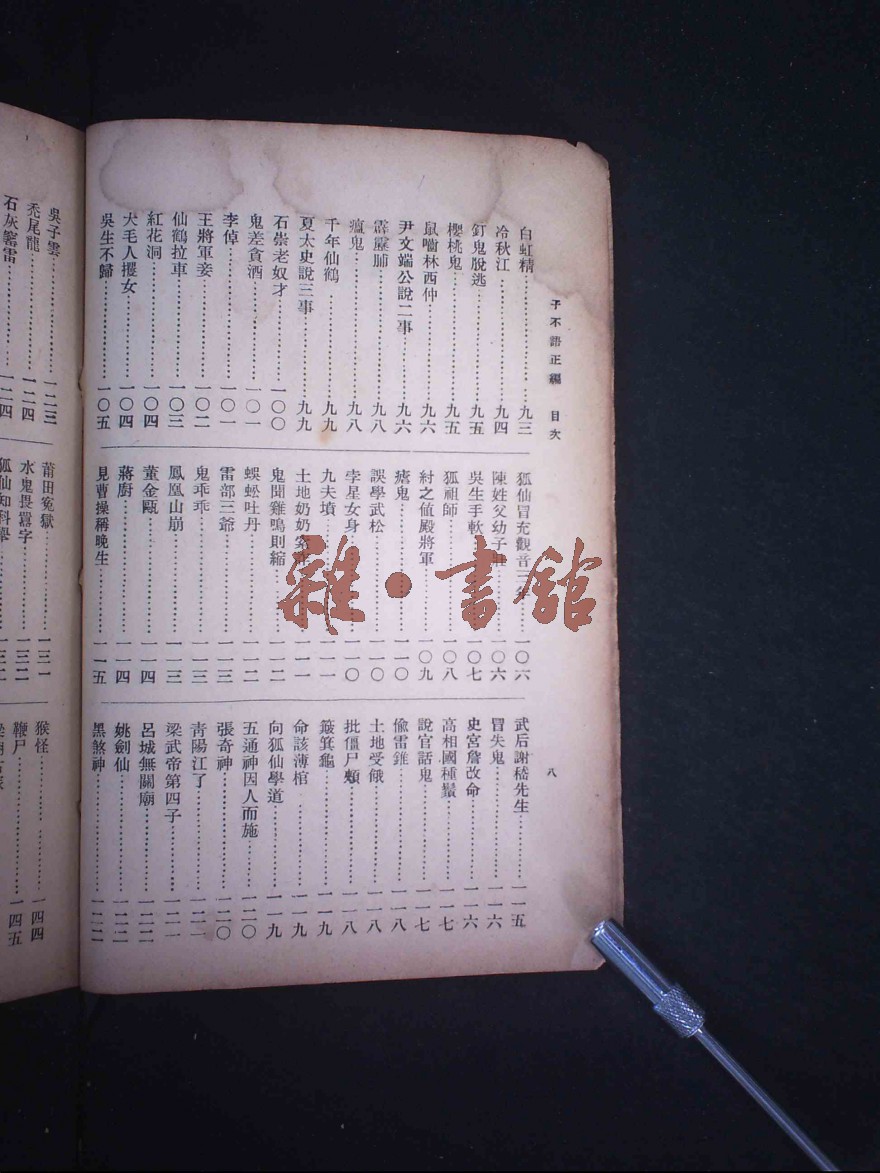 子不語正編 目次
八
白虹精⋯⋯九三
冷秋江⋯⋯九四
釘鬼脫逃⋯⋯九五
櫻桃鬼⋯⋯九五
鼠嚙林西仲⋯⋯九六
尹文端公說二事⋯⋯九六
霹靂脯⋯⋯九八
瘟鬼⋯⋯九八
千年仙鶴⋯⋯九九
夏太史說三事⋯⋯九九
石崇老奴才⋯⋯一〇〇
鬼差貪酒⋯⋯一〇一
李倬⋯⋯一〇一
王將軍妾⋯⋯一〇二
仙鶴拉車⋯⋯一〇三
紅花洞⋯⋯一〇四
大毛人攫女⋯⋯一〇四
吳生不歸⋯⋯一〇五
狐仙冒充觀音三年⋯⋯一〇六
陳姓父幼子壯⋯⋯一〇六
吳生手軟⋯⋯一〇七
狐祖師⋯⋯一〇八
紂之值殿將軍⋯⋯一〇九
瘧鬼⋯⋯一一〇
誤學武松⋯⋯一一〇
孛星女身⋯⋯一一〇
九夫墳⋯⋯一一一
土地奶奶索詐⋯⋯一一一
鬼聞雞鳴則縮⋯⋯一一二
蜈蚣吐丹⋯⋯一一二
雷部三爺⋯⋯一一三
鬼乖乖⋯⋯一一三
鳳凰山崩⋯⋯一一三
董金甌⋯⋯一一四
蔣廚⋯⋯一一四
見曹操稱晚生⋯⋯一一五
武后謝嵇先生⋯⋯一一五
冒失鬼⋯⋯一一六
史宮詹改命⋯⋯一一六
高相國種鬚⋯⋯一一七
說官話鬼⋯⋯一一七
偷雷錐⋯⋯一一八
土地受餓⋯⋯一一八
批僵尸頰⋯⋯一一八
簸箕龜⋯⋯一一九
命該薄棺⋯⋯一一九
向狐仙學道⋯⋯一一九
五通神因人而施⋯⋯一二〇
張奇神⋯⋯一二〇
青陽江了⋯⋯一二一
梁武帝第四子⋯⋯一二一
呂城無關廟⋯⋯一二二
姚劍仙⋯⋯一二二
黑煞神⋯⋯一二二
吳子雲⋯⋯一二三
禿尾龍⋯⋯一二四
石灰窰雷⋯⋯一二四
莆田冤獄⋯⋯一三一
水鬼畏囂字⋯⋯一三二
狐仙知科舉
猴怪⋯⋯一四四
鞭尸⋯⋯一四五
雜·書館